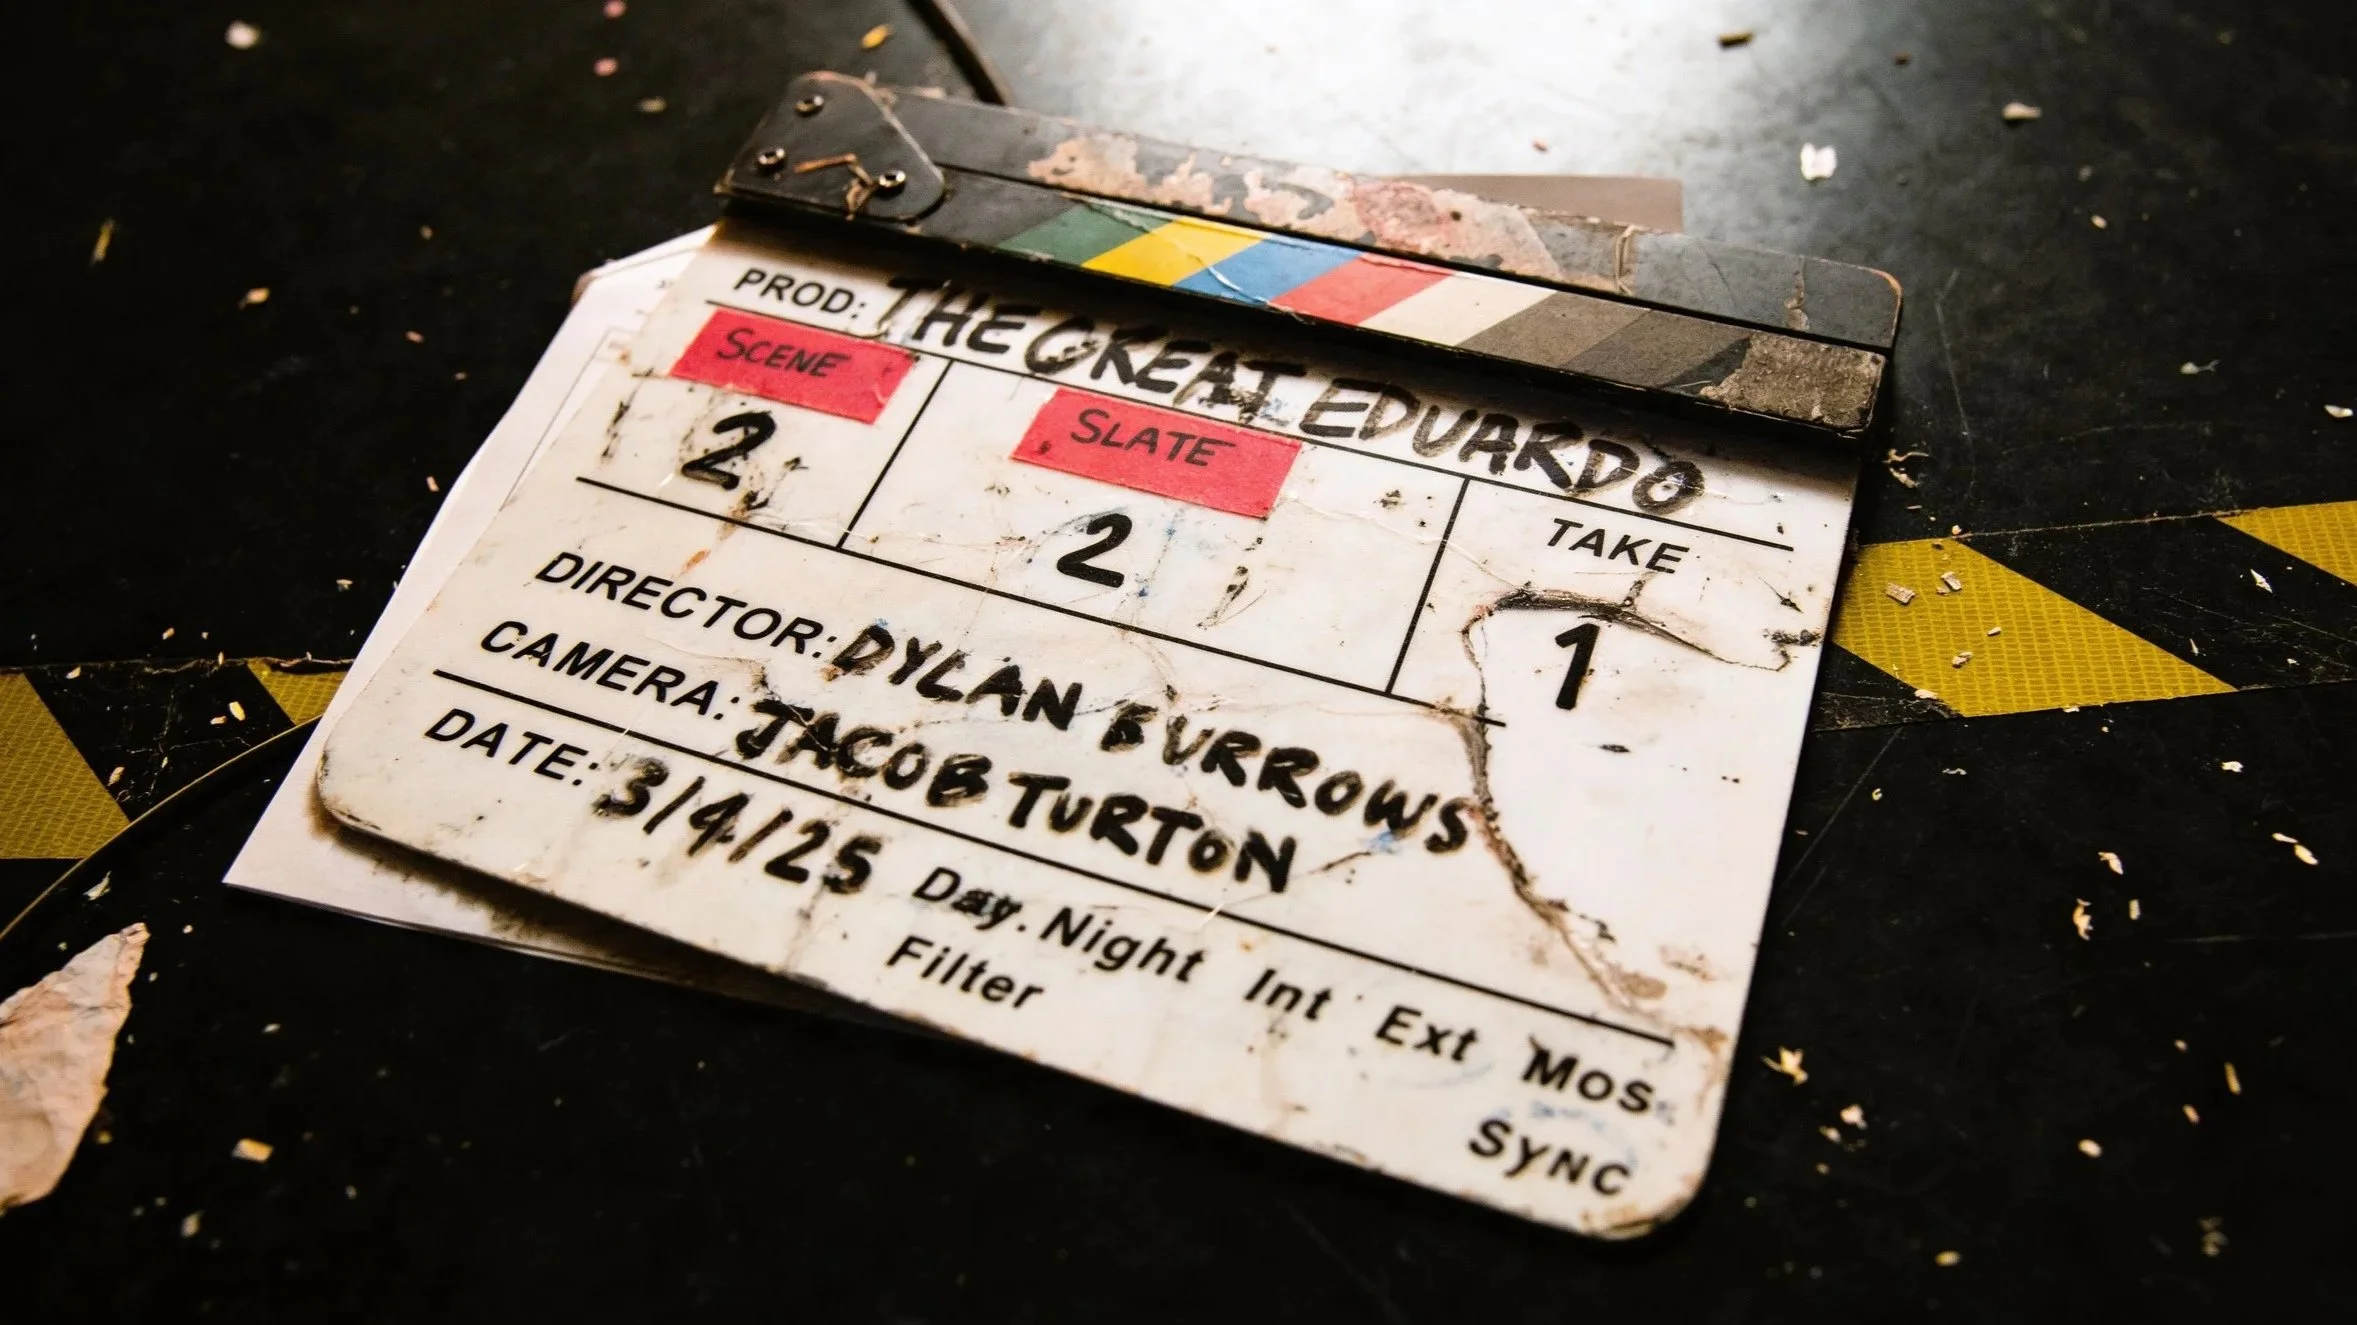 PROD: THE GREAT EDUARDO
SCENE
SLATE
TAKE
2
2
1
DIRECTOR: DYLAN BURROWS
CAMERA: JACOB TURTON
DATE: 3/4/25 Day. Night Int Ext Mos
Filter
SYNC